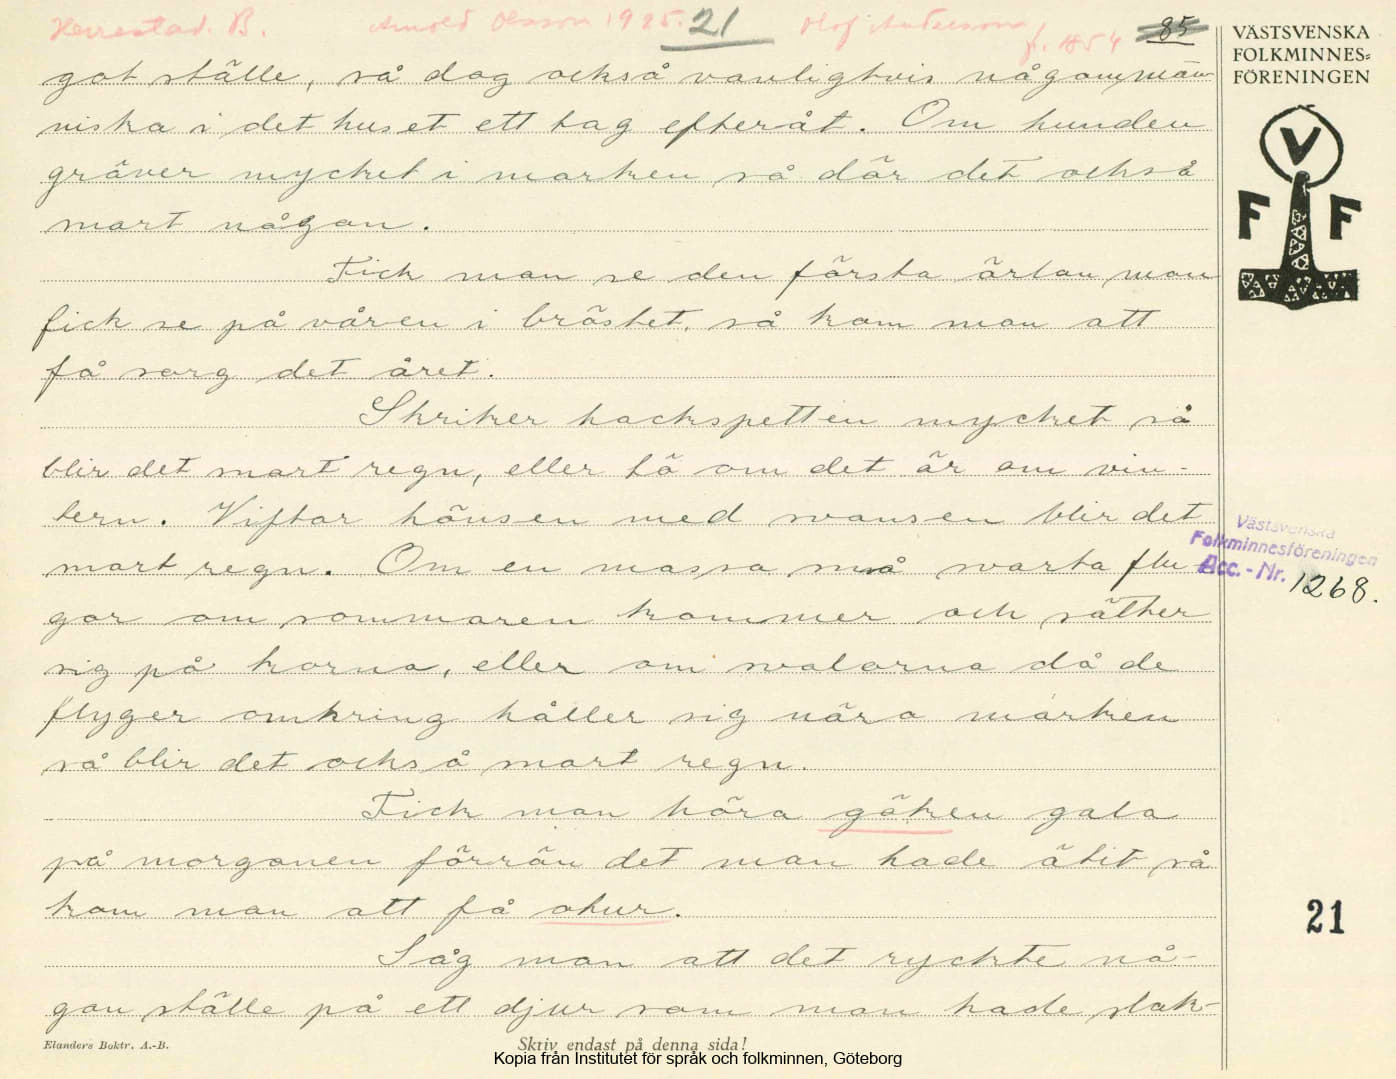 Herrestad. B. Arnold Olsson 1925. 21 Olof Andersson f. 1854 85
VÄSTSVENSKA
FOLKMINNES=
FÖRENINGEN
V
F F
got ställe, så dog också vanligtvis någon män-
niska i det huset ett tag efteråt. Om hunden
gräver mycket i marken så dör det också
snart någon.
Fick man se den första ärlan man
fick se på våren i bröstet, så kom man att
få sorg det året.
Skriker hackspetten mycket så
blir det snart regn, eller tö om det är om vin-
tern. Viftar hönsen med svansen blir det
snart regn. Om en massa små svarta flu-
gor om sommaren kommer och sätter
sig på korna, eller om svalorna då de
flyger omkring håller sig nära marken
så blir det också snart regn.
Fick man höra göken gala
på morgonen förrän det man hade ätit så
kom man att få otur.
Såg man att det ryckte nå-
gon ställe på ett djur som man hade slak-
Västsvenska
Folkminnesföreningen
Acc.-Nr. 1268.
21
Elanders Boktr. A.-B.
Skriv endast på denna sida!
Kopia från Institutet för språk och folkminnen, Göteborg